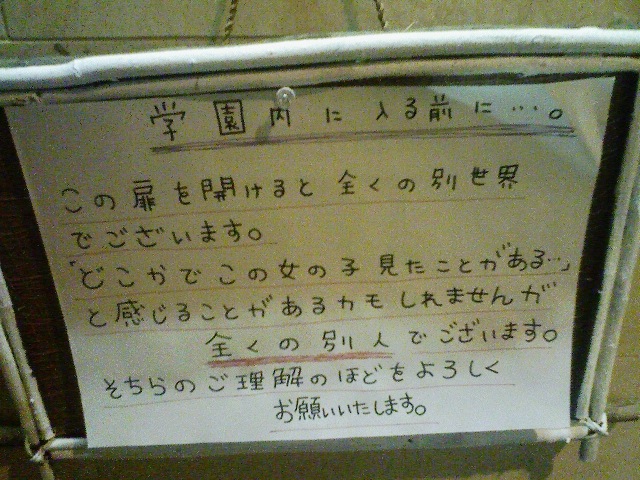 学園内に入る前に…。
この扉を開けると全くの別世界
でございます。
「どこかでこの女の子見たことがある…」
と感じることがあるカモしれませんが
全くの別人でございます。
そちらのご理解のほどをよろしく
お願いいたします。